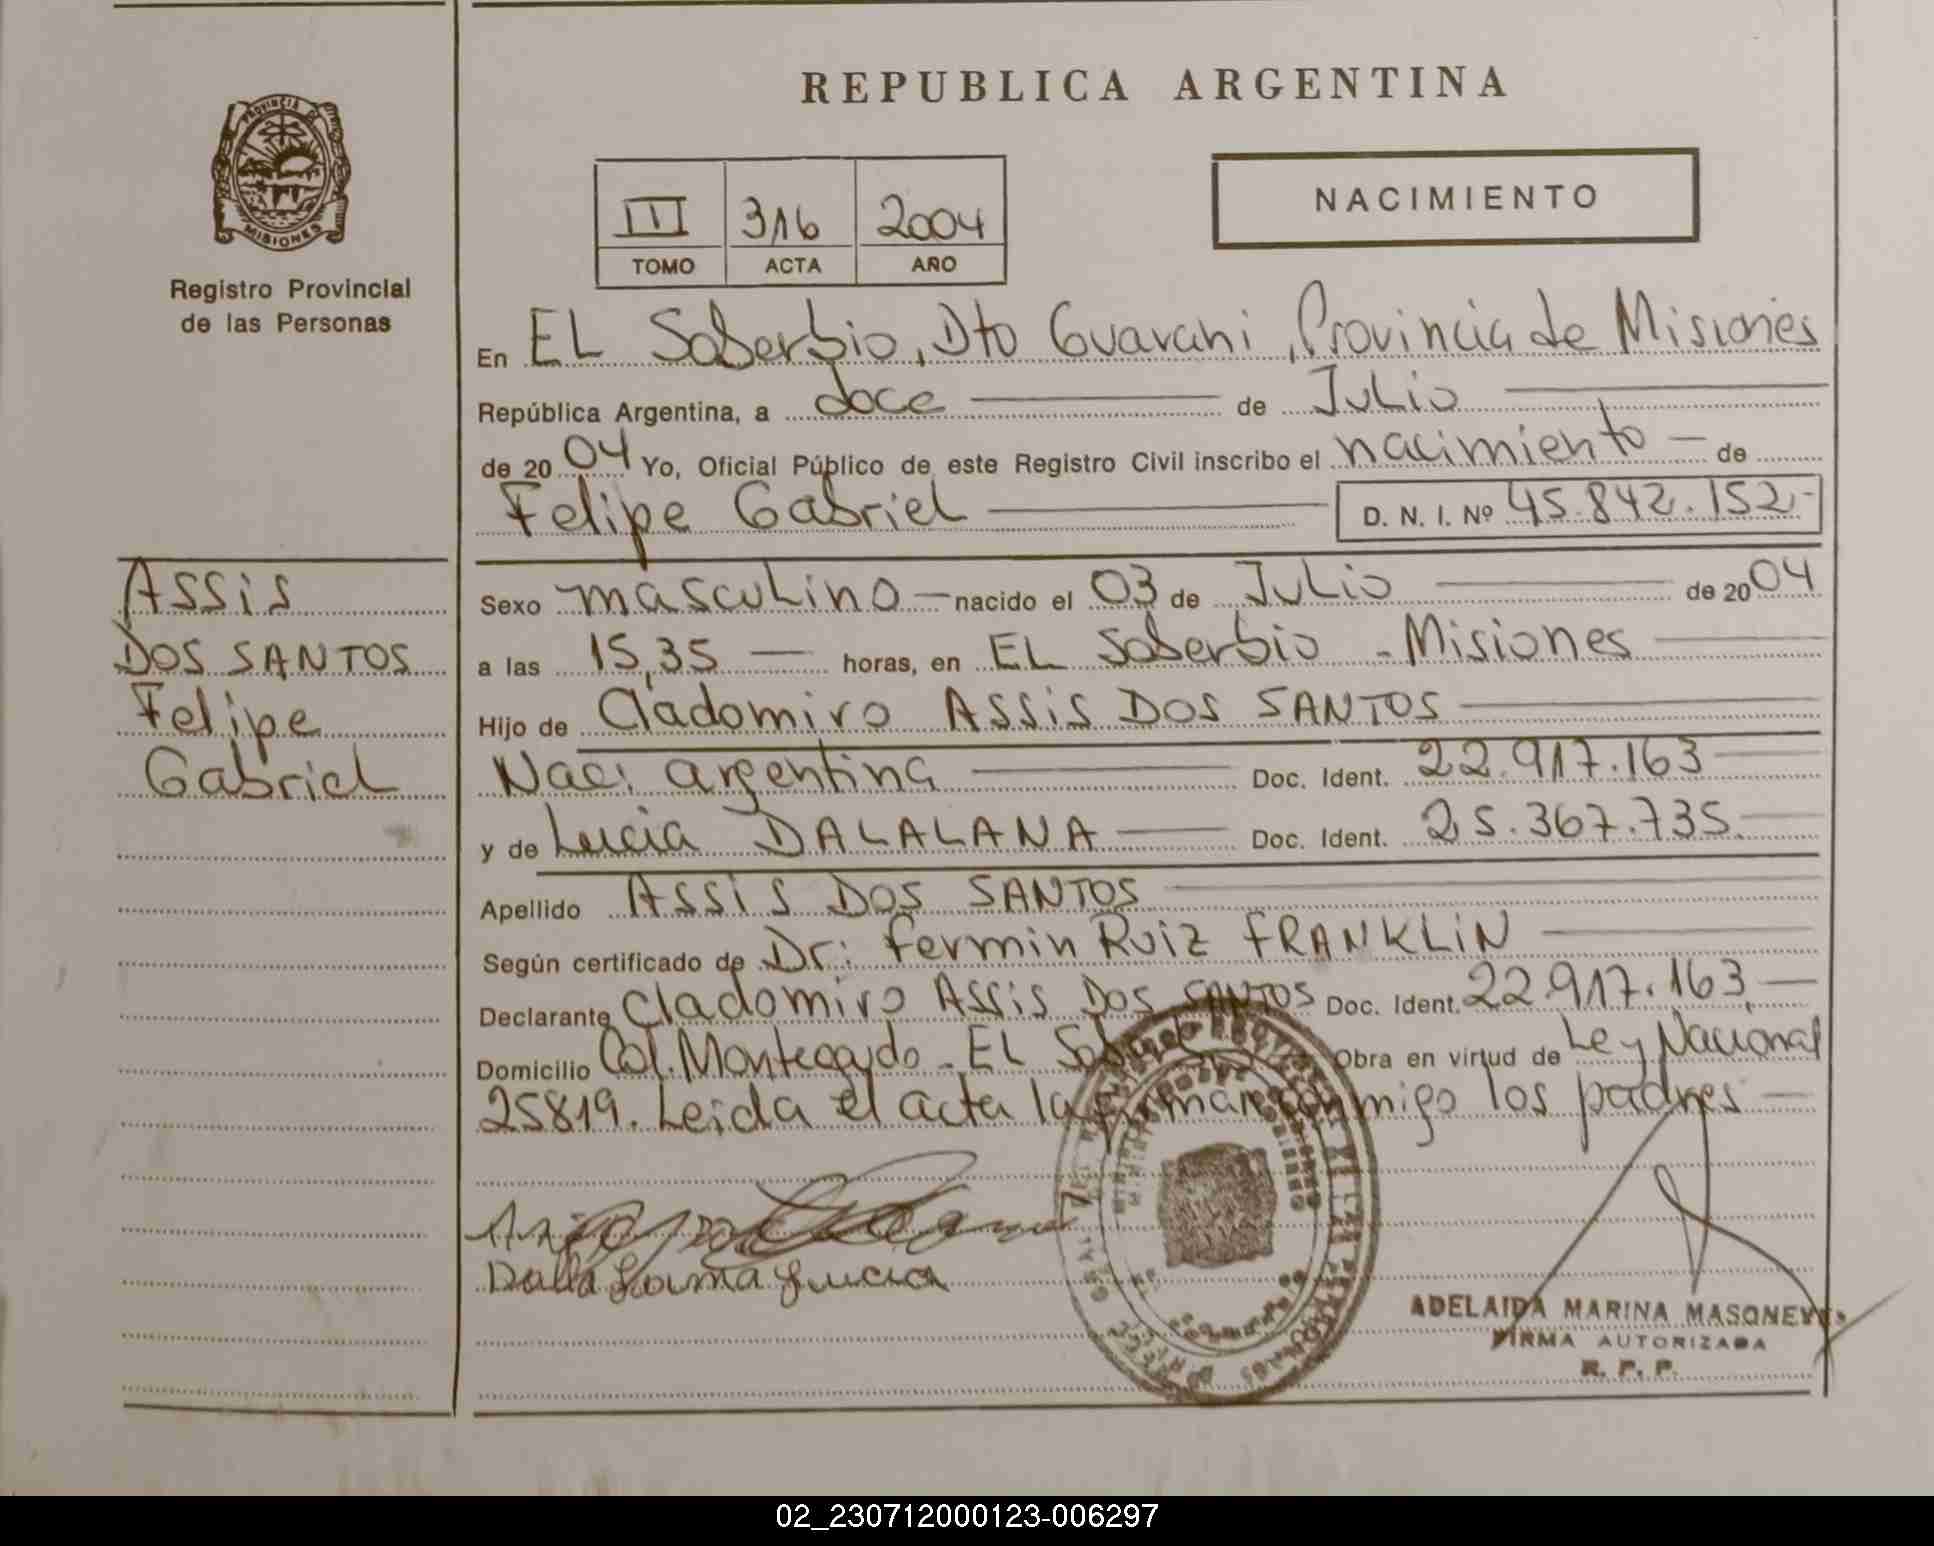 REPUBLICA ARGENTINA
PROVINCIA DE
MISIONES
Registro Provincial
de las Personas
NACIMIENTO
III 316 2004
TOMO ACTA AÑO
En EL Soberbio, Dto Guarani, Provincia de Misiones
República Argentina, a doce de Julio
de 2004 Yo, Oficial Público de este Registro Civil inscribo el nacimiento de
Felipe Gabriel D. N. I. Nº 45.842.152.-
ASSiS
DOS SANTOS
Felipe
Gabriel
Sexo masculino nacido el 03 de Julio de 2004
a las 15,35 horas, en EL Soberbio - Misiones
Hijo de Cladomiro ASSiS DOS SANTOS
Nac: argentina Doc. Ident. 22.917.163
y de Lucia DALALANA Doc. Ident. 25.367.735.
Apellido ASSiS DOS SANTOS
Según certificado de Dr: Fermin Ruiz FRANKLiN
Declarante Cladomiro Assis Dos SANTOS Doc. Ident. 22.917.163,
Domicilio Col. Monteagudo - EL Soberbio Obra en virtud de Ley Nacional
25819. Leida el acta la firman conmigo los padres
Dalla Lucia
ADELAIDA MARINA MASONEYS
FIRMA AUTORIZADA
R. P. P.
02_230712000123-006297